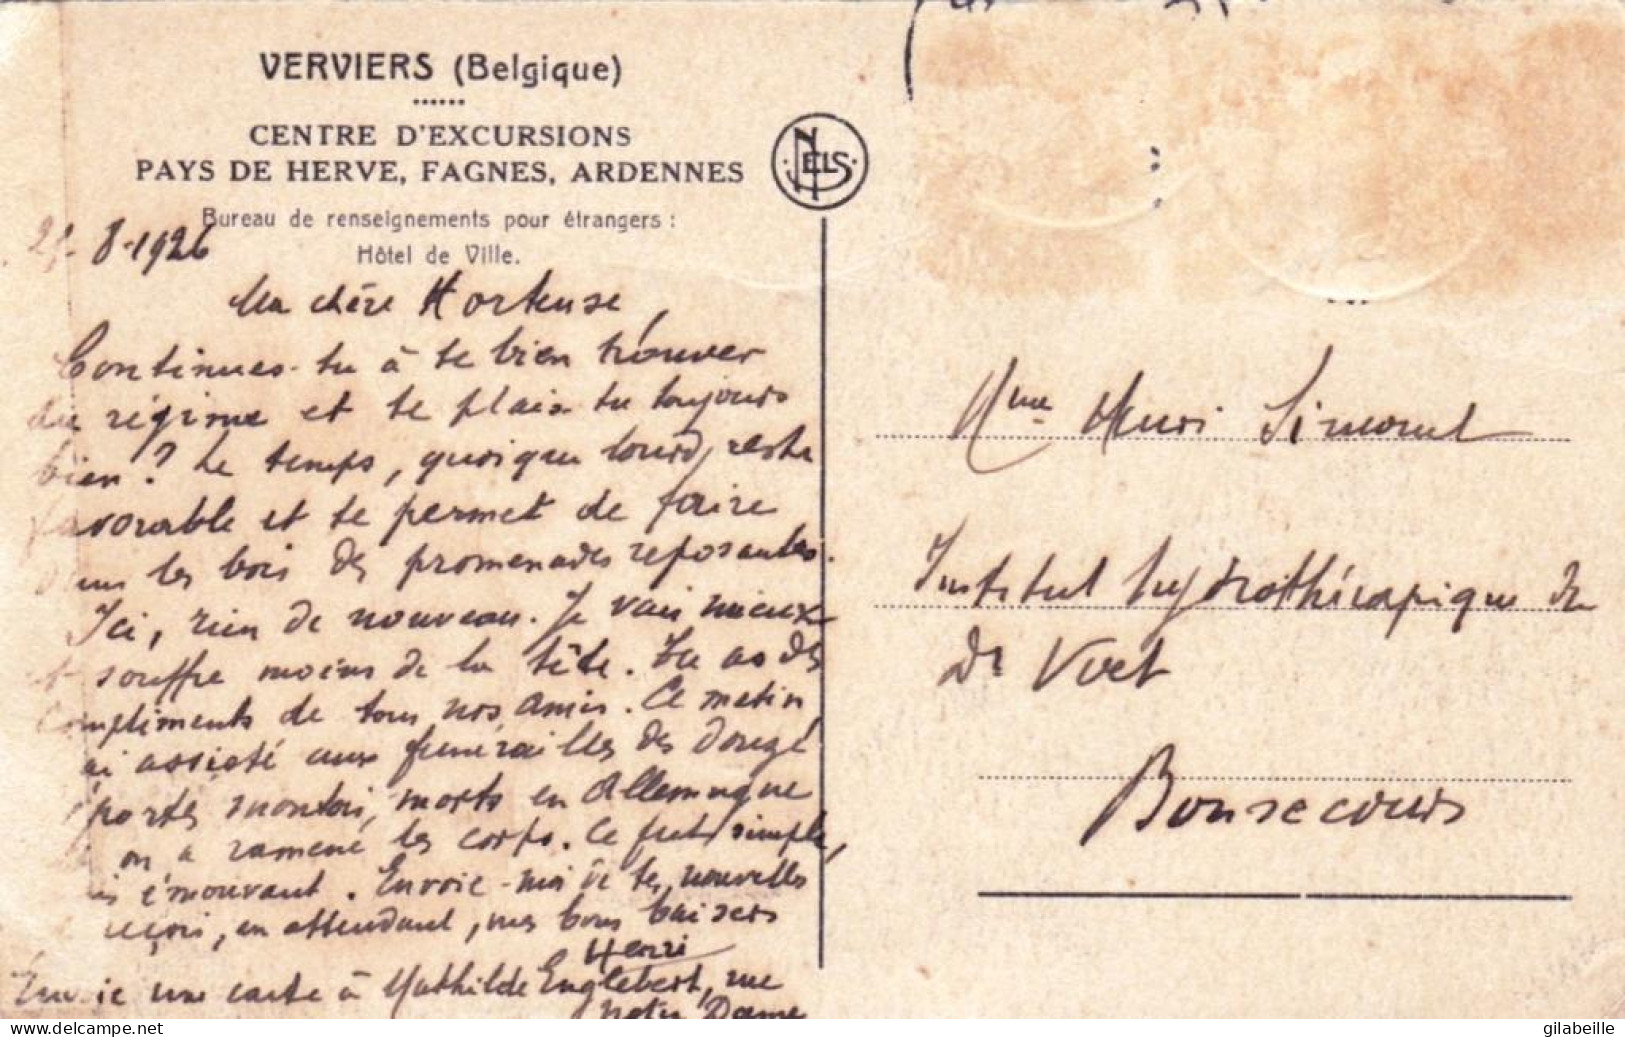 VERVIERS (Belgique)
CENTRE D'EXCURSIONS
PAYS DE HERVE, FAGNES, ARDENNES
Bureau de renseignements pour étrangers :
Hôtel de Ville.
NELS
8-1926
Ma chère Hortense,
Continues-tu à te bien trouver
du régime et te plais-tu toujours
bien ? Le temps, quoique lourd, reste
favorable et te permet de faire
dans les bois des promenades reposantes.
Ici, rien de nouveau. Je vais mieux
et souffre moins de la tête. Tu as des
compliments de tous nos amis. Ce matin,
ai assisté aux funérailles des douze
portés montois, morts en Allemagne
on a ramené les corps. Ce fut simple,
mais émouvant. Envoie-moi de tes nouvelles
reçois, en attendant, mes bons baisers
Henri
Envoie une carte à Mathilde Englebert, rue
Notre Dame
Mme Henri Simonet
Institut hydrothérapique du
Dr Voet
Bonsecours
gilabeille